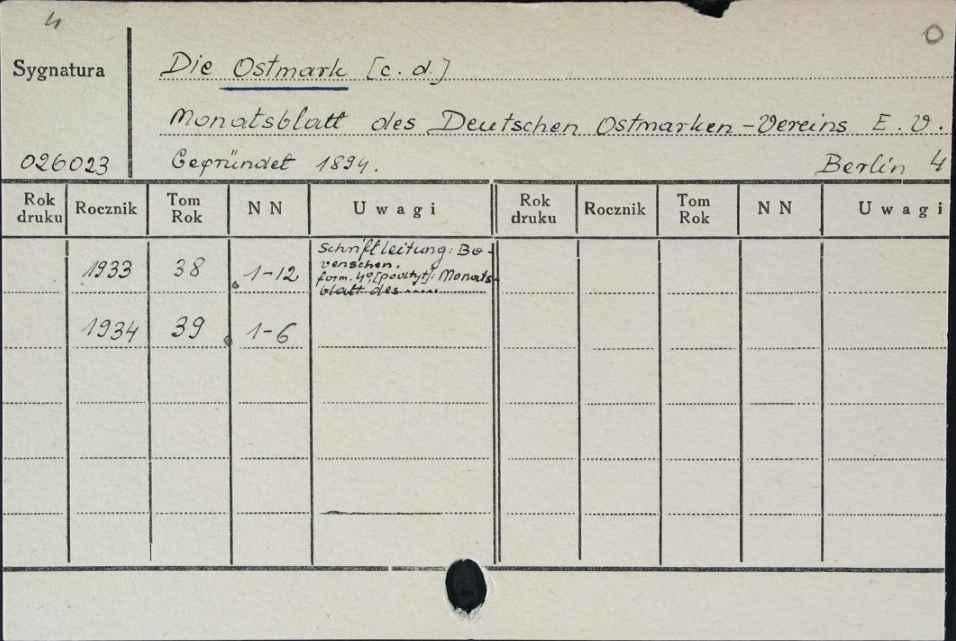 4
O
Sygnatura
Die Ostmark [c. d.]
Monatsblatt des Deutschen Ostmarken-Vereins E. V.
026023
Gegründet 1894.
Berlin 4
Rok druku Rocznik Tom Rok N N U w a g i Rok druku Rocznik Tom Rok N N U w a g i
1933 38 1-12 Schriftleitung: Bo-
venschen.
form. 4º, [podtyt]: Monats-
blatt des......
1934 39 1-6